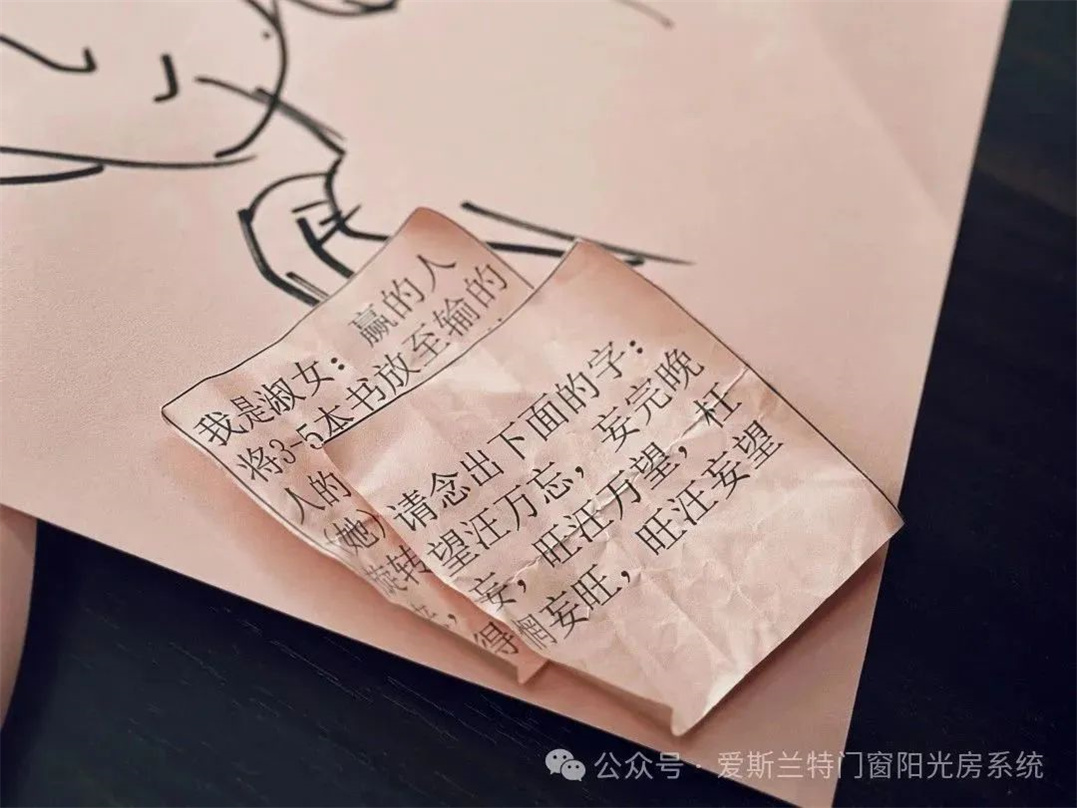 我是淑女：赢的人
将3-5本书放至输的
人的
（她）
旋转
，得
请念出下面的字：
望汪万忘，妄完晚
妄，旺汪万望，枉
惘妄旺，旺汪妄望
公众号 · 爱斯兰特门窗阳光房系统